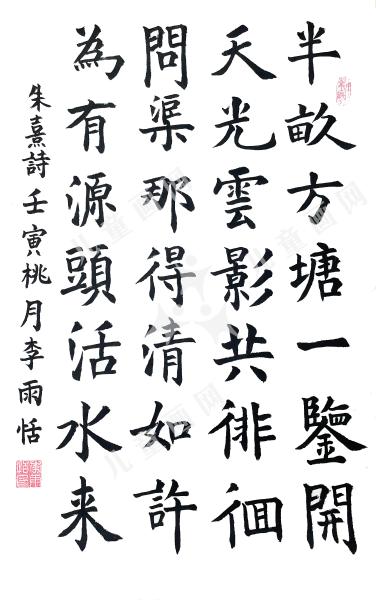 半畝方塘一鑒開
天光雲影共徘徊
問渠那得清如許
為有源頭活水来
朱熹詩壬寅桃月李雨恬
儿童画网